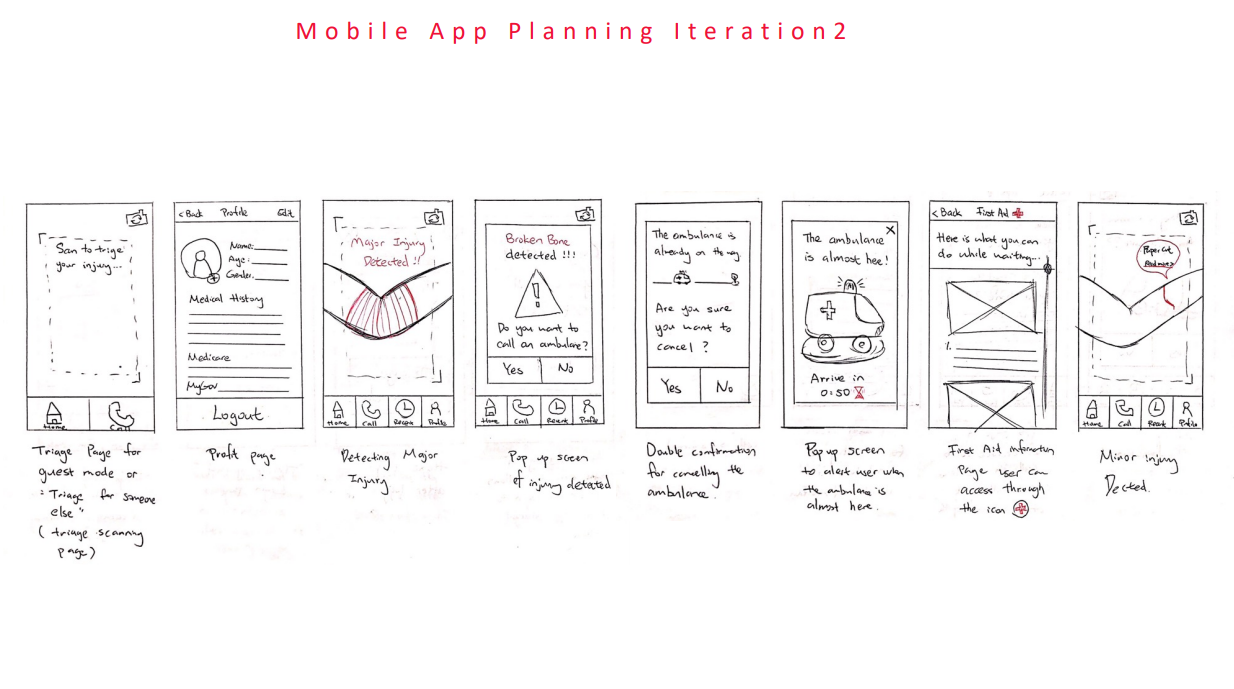 Mobile App Planning Iteration2
San to trige
your injury...
Home
Call
Triage Page for
guest mode or
"Triage for someone
else"
(triage scanning
page)
< Back Profile Edit
Name:
Age:
Gender:
Medical History
Medicare
MyGov
Logout
Profit page
Major Injury
Detected!!
Home Call Recent Profile
Detecting Major
Injury
Broken Bone
detected!!!
!
Do you want to
call an ambulane?
Yes No
Home Call Recent Profile
Pop up screen
of injury detected
The ambulance is
already on the way
Are you sure
you want to
cancel?
Yes No
Double confirmation
for cancelling the
ambulance.
X
The ambulance
is almost hee!
Arrive in
0:50
Pop up screen
to alert user when
the ambulance is
almost here.
< Back First Aid
Here is what you can
do while waiting...
1.
First Aid information
Page user can
access through
the icon
Paper Cut
Read more >
Home Call Recent Profile
Minor injury
Dected.